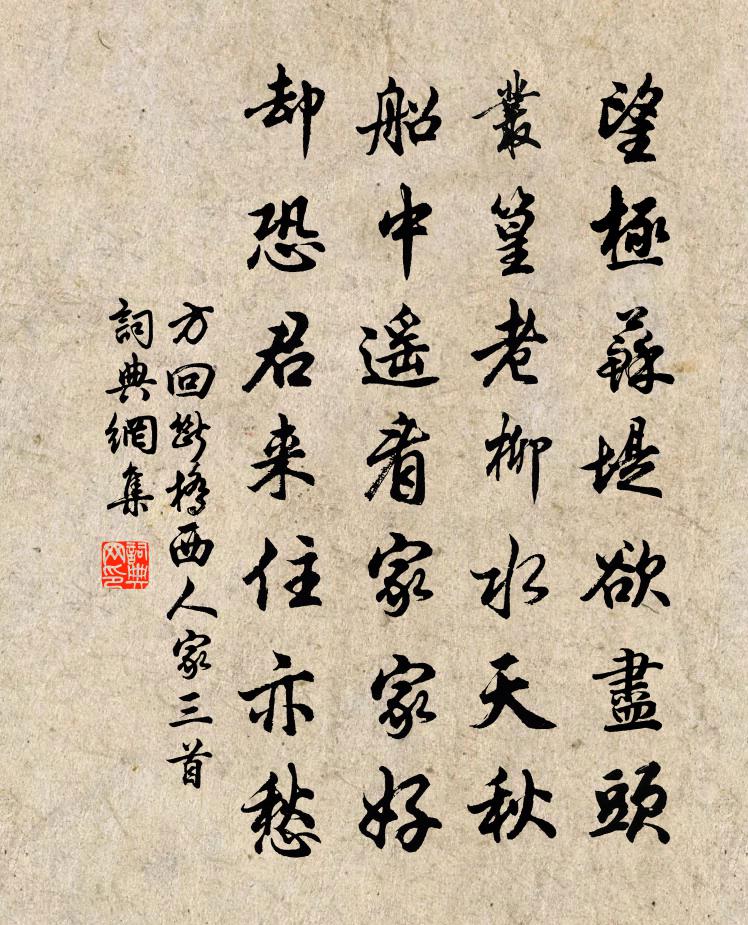 望極蘇堤欲盡頭
叢篁老柳水天秋
船中遥看家家好
却恐君来住亦愁
方回斷橋西人家三首
詞典網集
詞典網印